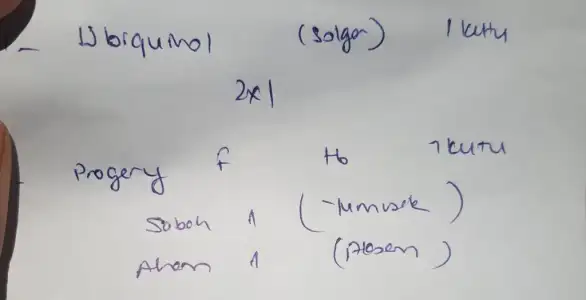 - Ubiquinol (Solgar) 1 kutu
2x1
- Progery F tb 1 kutu
Sabah 1
Akşam 1